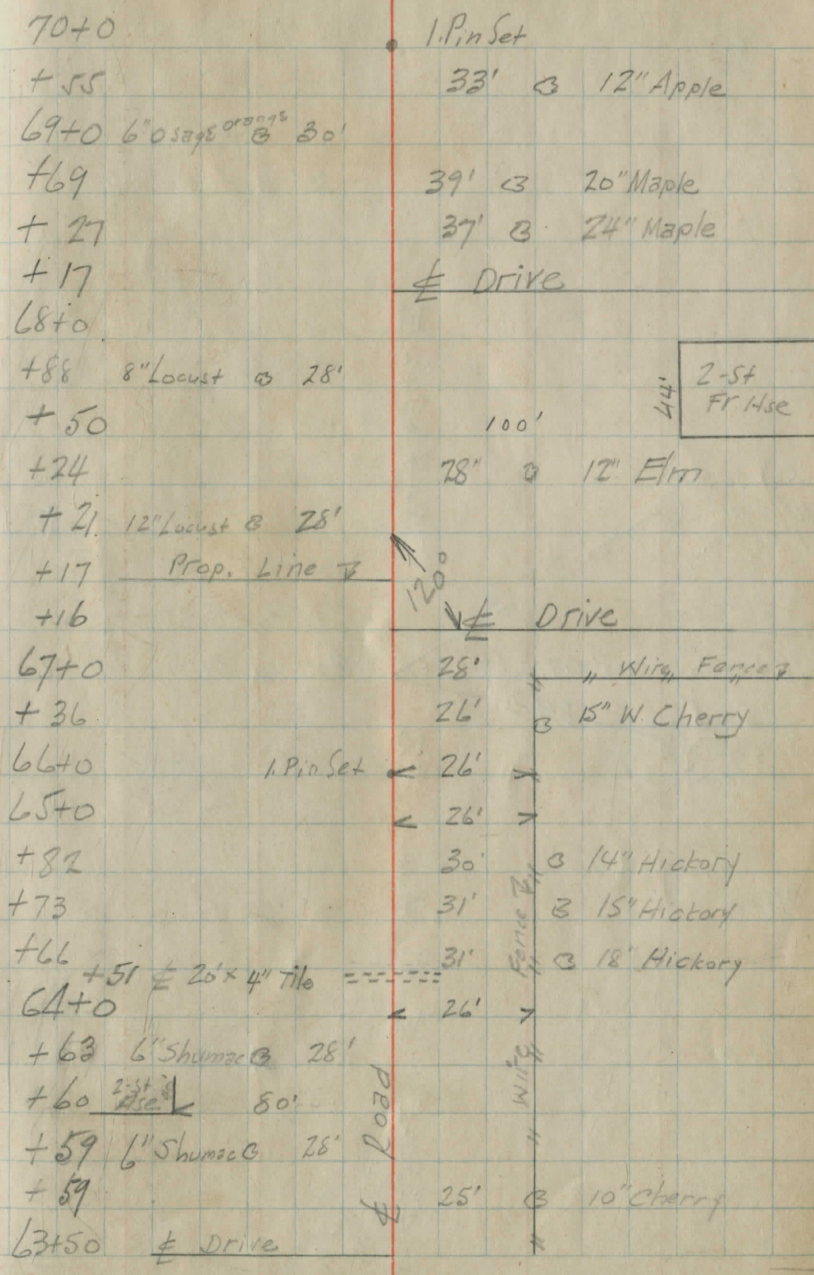 70+0 1.Pin Set
+55 33' 12" Apple
69+0 6" Osage orange 30'
+69 39' 20" Maple
+27 37' 24" Maple
+17 ℄ Drive
68+0
+88 8" Locust 28'
44' 2-St
Fr Hse
+50 100'
+24 28" 12" Elm
+21 12" Locust 28'
+17 Prop. Line
120°
+16 ℄ Drive
67+0 28' Wire Fence
+36 26' 15" W. Cherry
66+0 1.Pin Set 26'
65+0 26'
+82 30' 14" Hickory
+73 31' 15" Hickory
+66 31' 18" Hickory
+51 ℄ 20' x 4" Tile
64+0 26'
Wire Fence
+63 6" Shumac 28'
+60 2-St Hse 80'
+59 6" Shumac 28'
℄ Road
+59 25' 10" Cherry
63+50 ℄ Drive